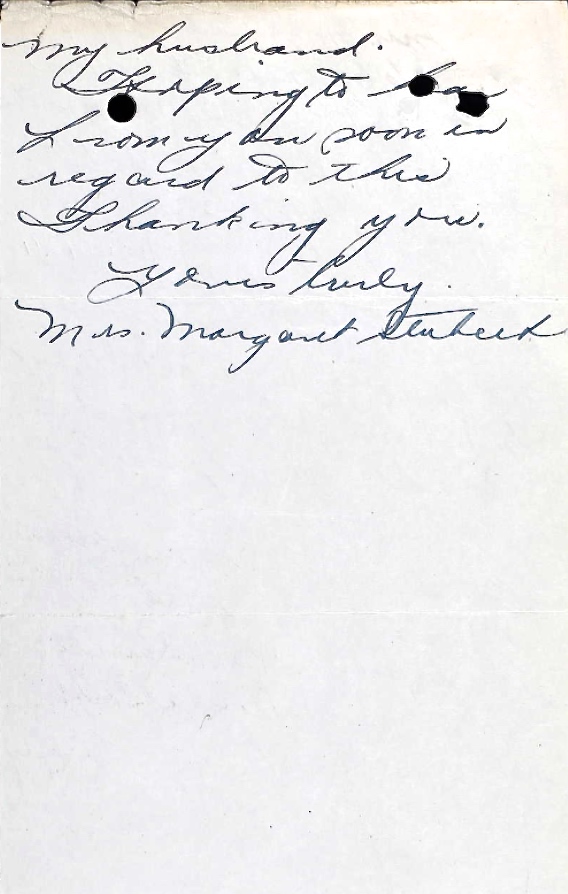 my husband.
Hoping to hear
from you soon in
regard to this
Thanking you.
Yours truly.
Mrs. Margaret